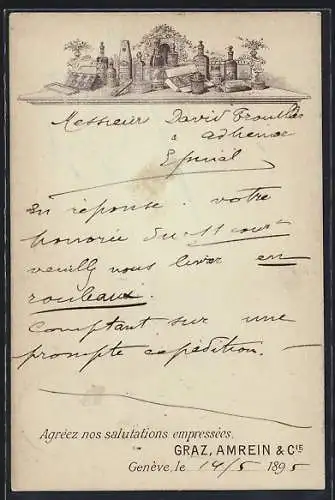 Messieurs David Trouillas
à
Adhenae
Epinal
En réponse. votre
honorée du 11 court
veuillez nous livrer en
rouleaux.
Comptant sur une
prompte expédition.
Agréez nos salutations empressées.
GRAZ, AMREIN & CIE
Genève, le 14/5 1895